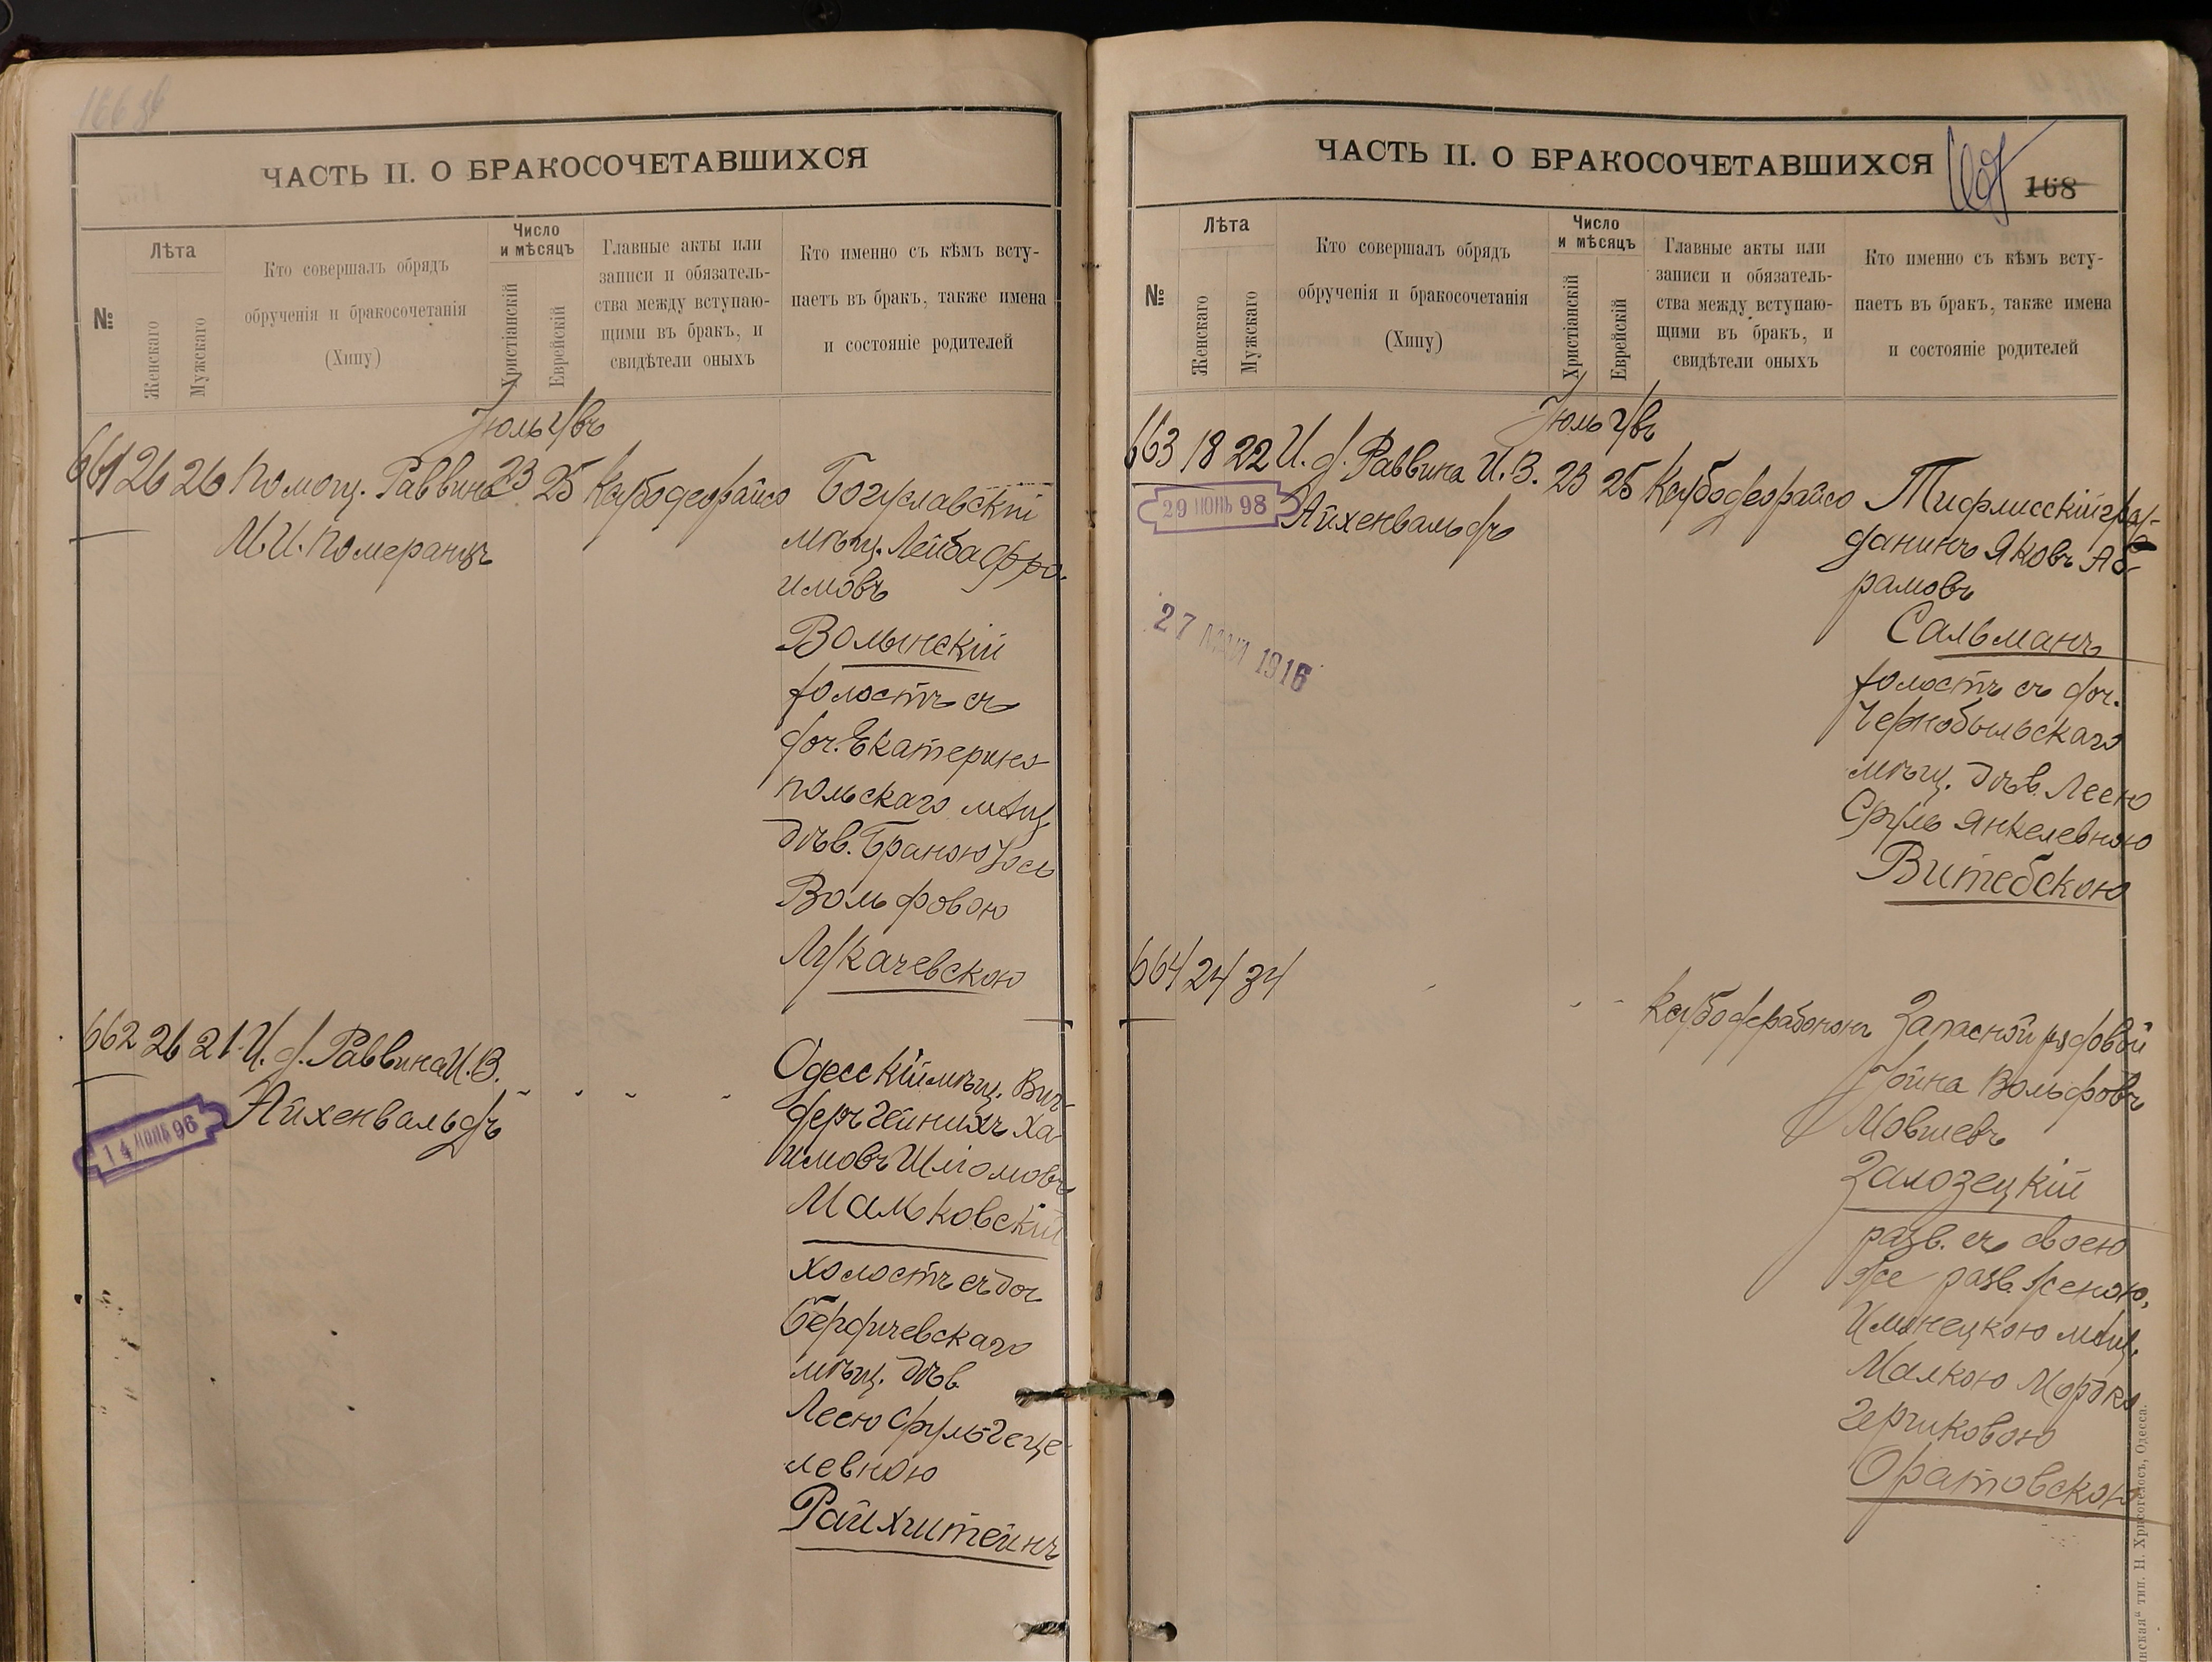 166 об
ЧАСТЬ II. О БРАКОСОЧЕТАВШИХСЯ
№
Лѣта
Женскаго
Мужскаго
Кто совершалъ обрядъ
обрученія и бракосочетанія
(Хипу)
Число
и мѣсяцъ
Христіанскій
Еврейскій
Главные акты или
записи и обязатель-
ства между вступаю-
щими въ бракъ, и
свидѣтели оныхъ
Кто именно съ кѣмъ всту-
паетъ въ бракъ, также имена
и состояніе родителей
Іюль
661 26 26 Помощ. Раввина 23 25
М. И. Померанцъ
Богуславскій
мѣщ. Лейба Фро-
имовъ
Волынскій
холостъ съ
доч. Екатерино-
польскаго мѣщ.
дѣв. Браною Хось
Вольфовою
Лукачевскою
662 26 21 И. д. Раввина И. В.
Айхенвальдъ
14 ИЮНЬ 96
Одесскій мѣщ. Виг-
деръ Гейнихъ Ха-
имовъ Шліомовъ
Мальковскій
холостъ съ доч
Бердичевскаго
мѣщ. дѣв.
Леею Сруль Геце-
левною
Райхштейнъ
ЧАСТЬ II. О БРАКОСОЧЕТАВШИХСЯ
168
№
Лѣта
Женскаго
Мужскаго
Кто совершалъ обрядъ
обрученія и бракосочетанія
(Хипу)
Число
и мѣсяцъ
Христіанскій
Еврейскій
Главные акты или
записи и обязатель-
ства между вступаю-
щими въ бракъ, и
свидѣтели оныхъ
Кто именно съ кѣмъ всту-
паетъ въ бракъ, также имена
и состояніе родителей
Іюль
663 18 22 И. д. Раввина И. В. 23 25
Айхенвальдъ
29 ИЮНЬ 98
27 МАИ 1916
Тифлисскій граж-
данинъ Яковъ Аб-
рамовъ
Сальманъ
холостъ съ доч.
Чернобыльскаго
мѣщ. дѣв. Леею
Сруль Янкелевною
Витебскою
664 24 34
Запасной рядовой
Іойна Вольфовъ
Мовшевъ
Залозецкій
разв. съ своею
же разв. женою,
Илинецкою мѣщ.
Малкою Мордко
Гершковою
Оратовскою
тип. Н. Хрисогелосъ, Одесса.